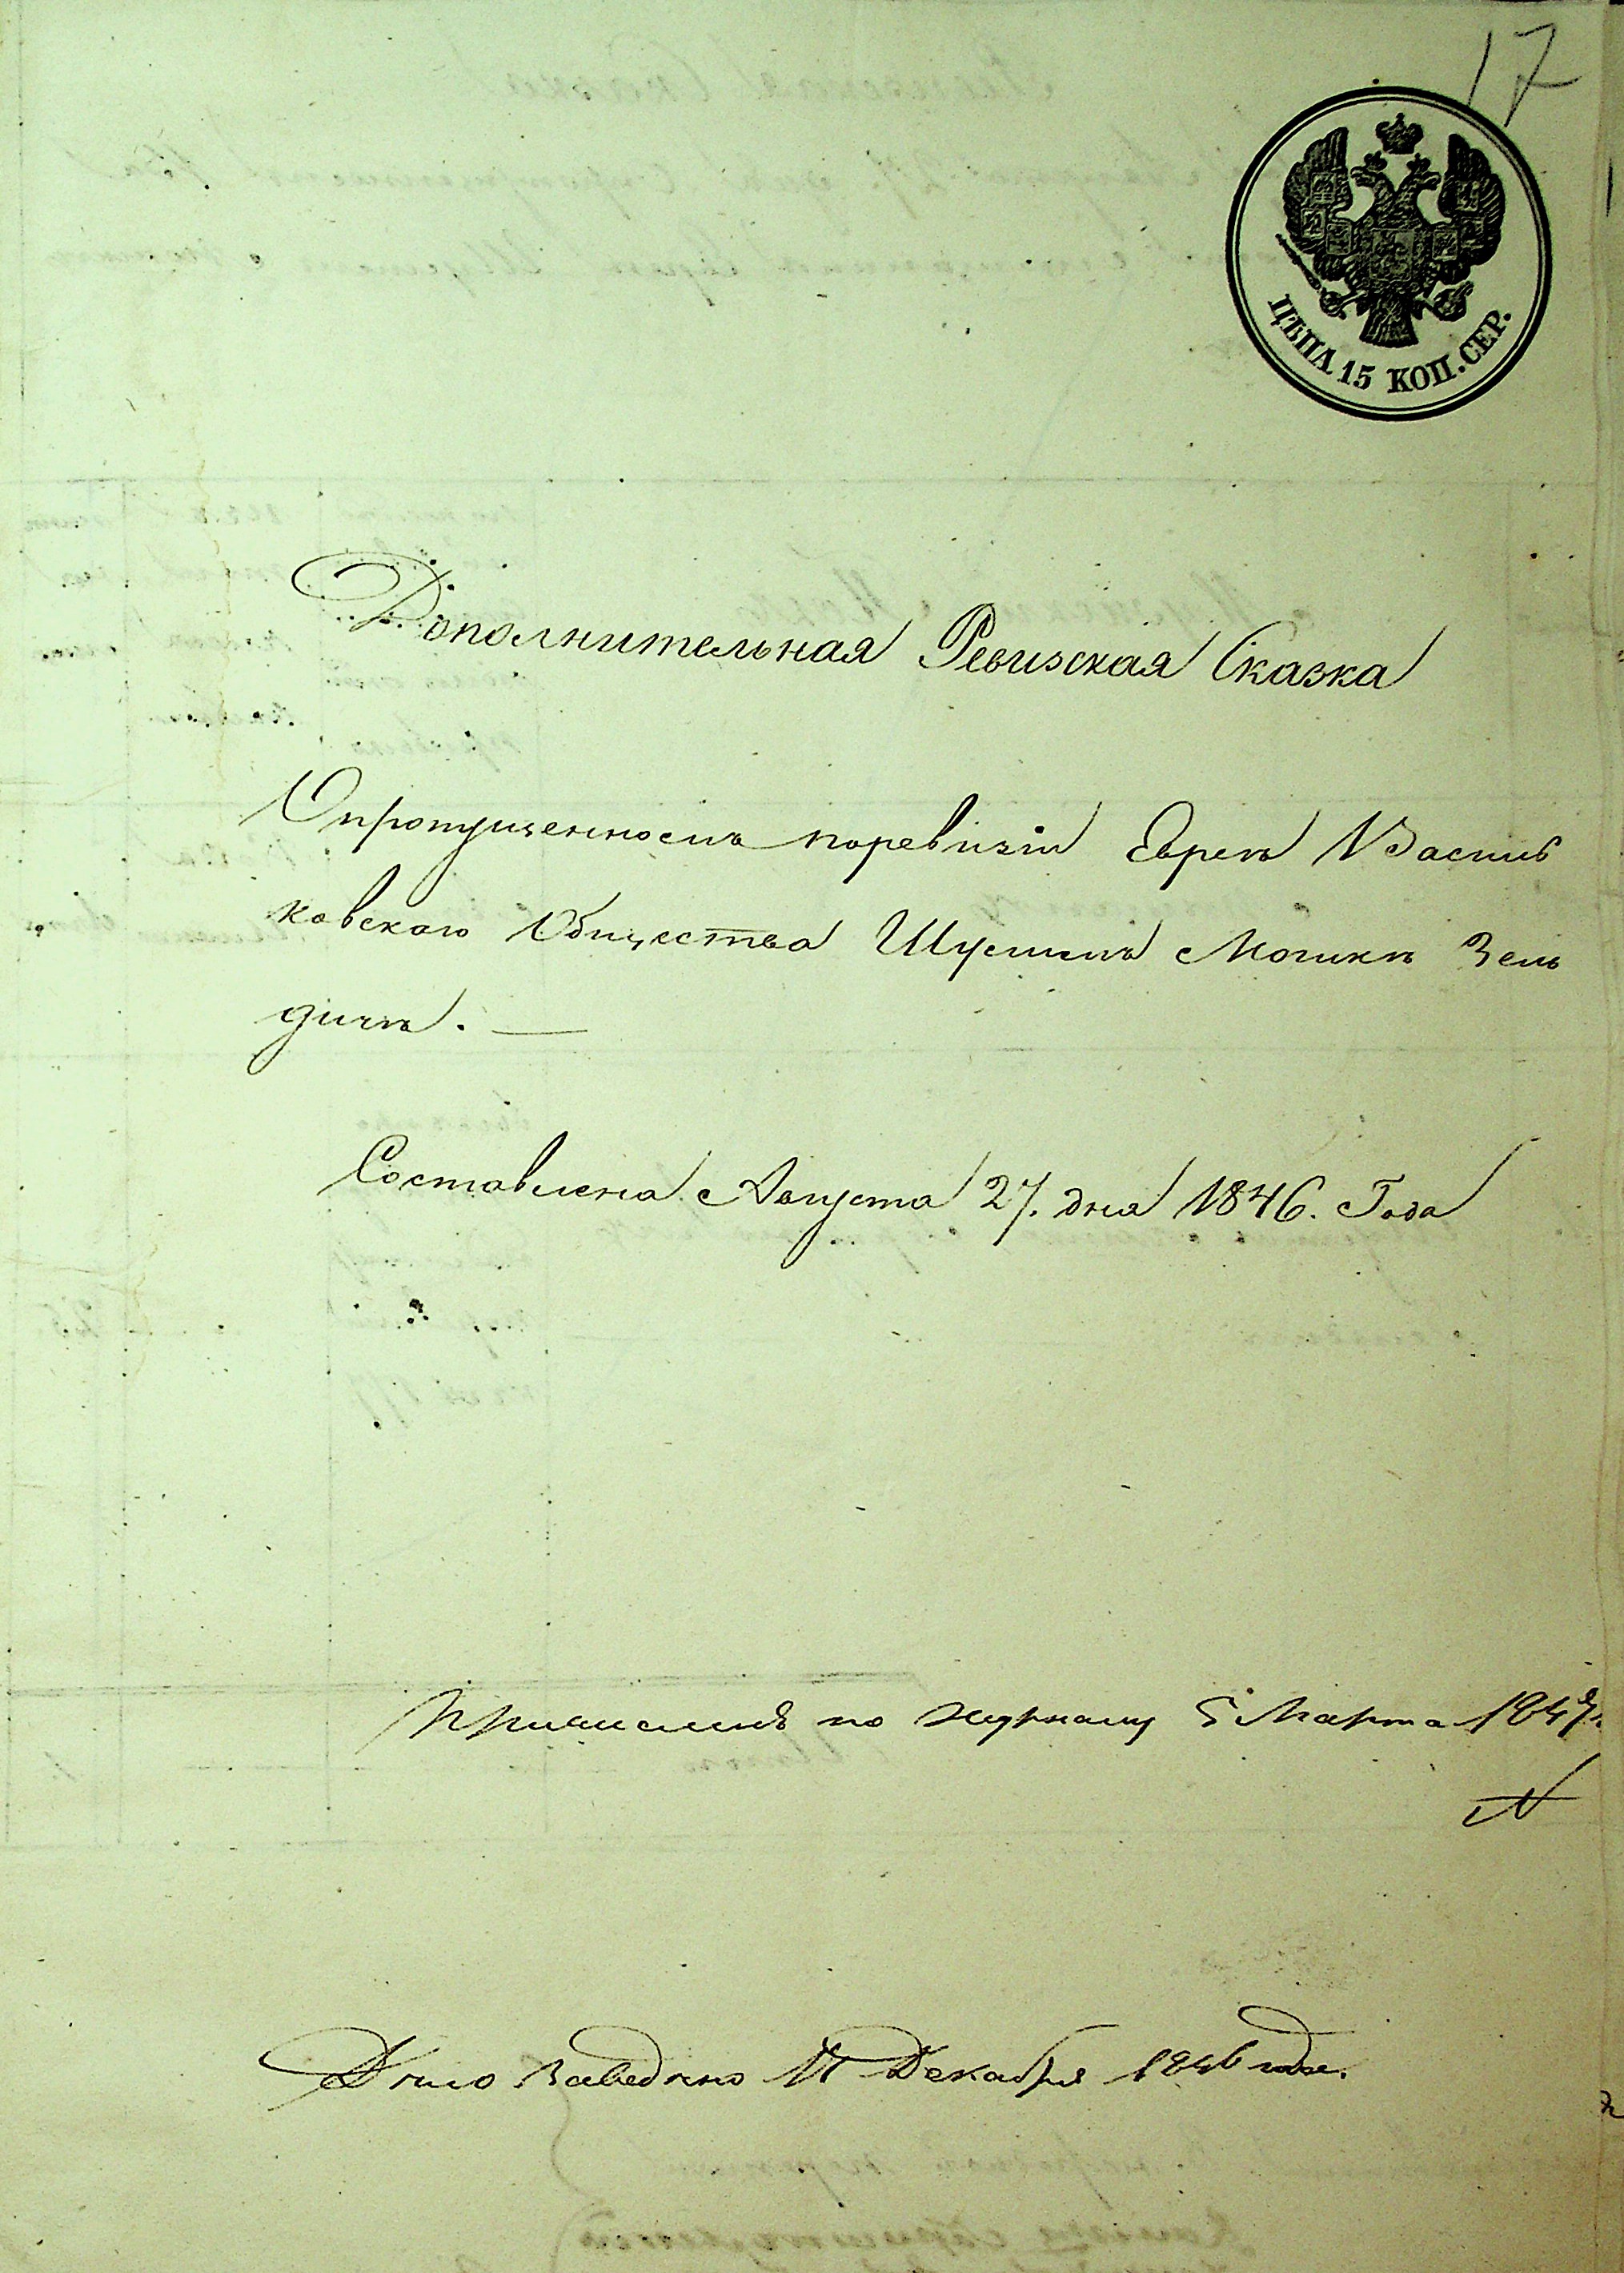 17
ЦѢНА 15 КОП. СЕР.
Дополнительная Ревизская Сказка
О пропущенномъ поревизіи Евреѣ Василь
ковскаго Общества Шулимѣ Мошкѣ Зель
дичѣ. —
Составлена Августа 27. дня 1846. Года
Причисленъ по журналу 5 Марта 1847.
Дѣло заведено 11 Декабря 1846 года.